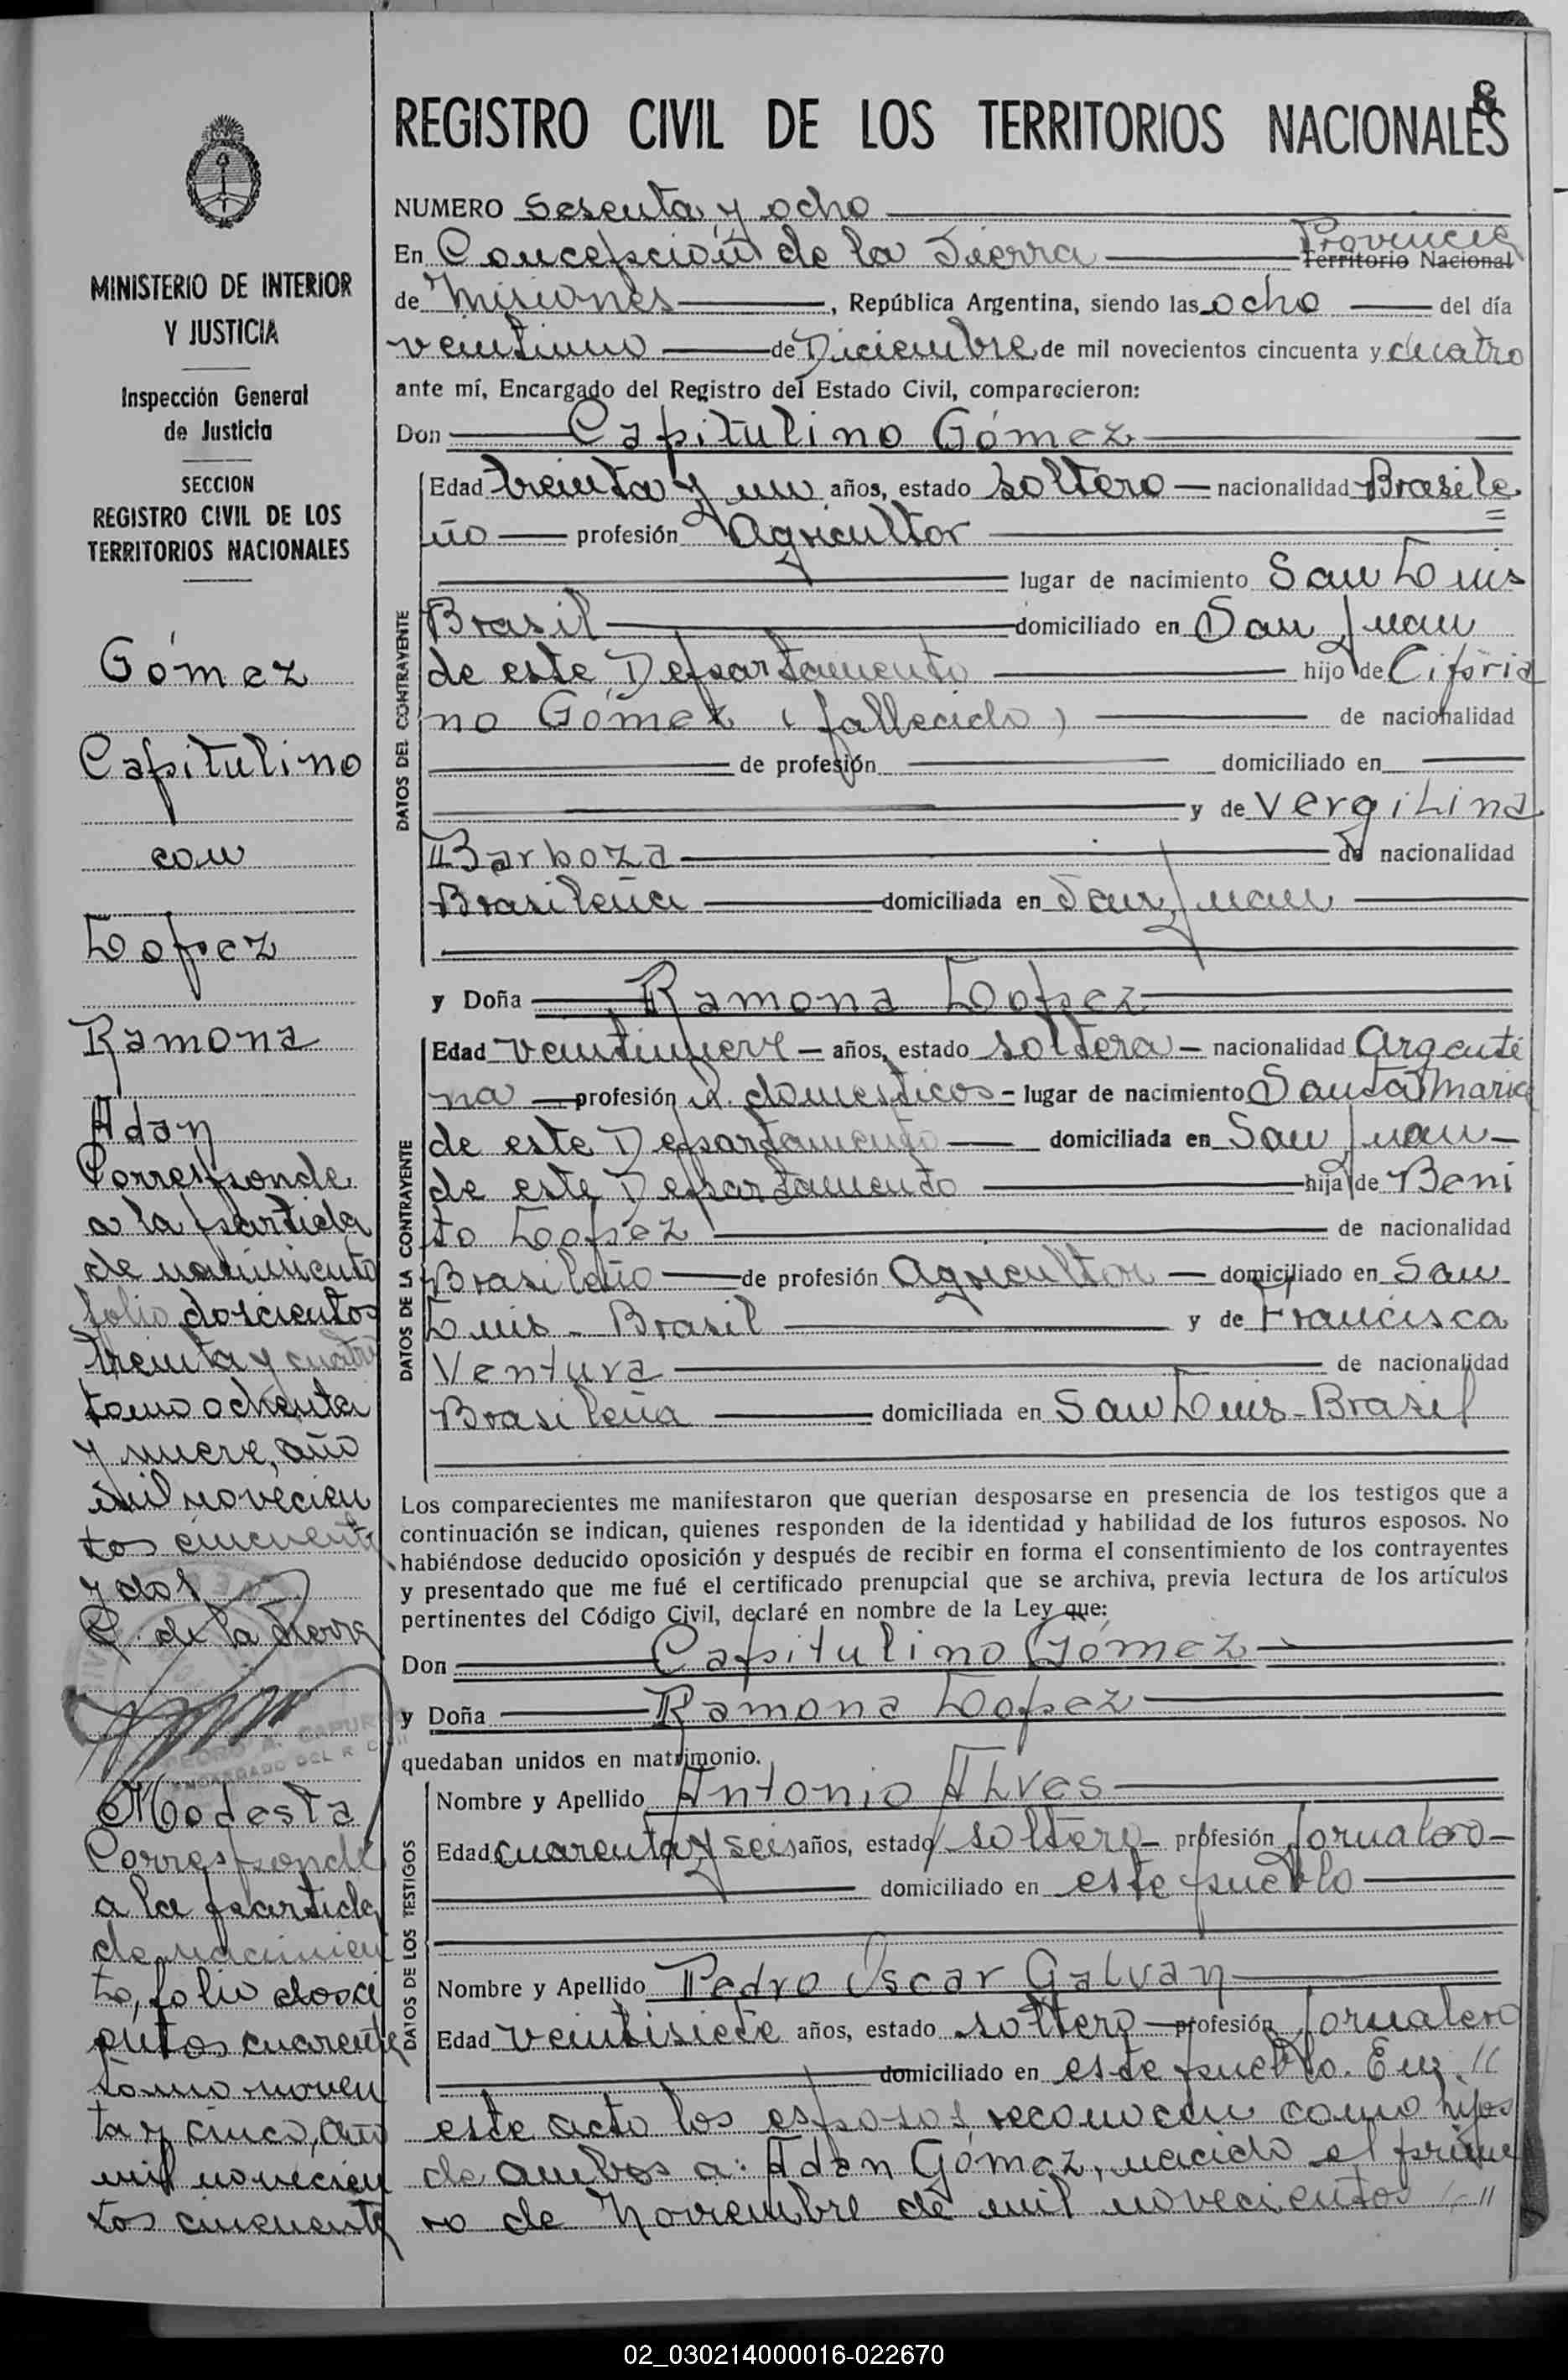 8
REGISTRO CIVIL DE LOS TERRITORIOS NACIONALES
NUMERO Sesenta y ocho
En Concepción de la Sierra Provincia Territorio Nacional
de Misiones, República Argentina, siendo las ocho del día
veintiuno de Diciembre de mil novecientos cincuenta y cuatro
ante mí, Encargado del Registro del Estado Civil, comparecieron:
Don Capitulino Gómez
DATOS DEL CONTRAYENTE
Edad treinta y un años, estado soltero nacionalidad Brasile
ño profesión Agricultor
lugar de nacimiento San Luis
Brasil domiciliado en San Juan
de este Departamento hijo de Cipria
no Gómez (fallecido) de nacionalidad
de profesión domiciliado en
y de Vergilina
Barboza de nacionalidad
Brasileña domiciliada en San Juan
y Doña Ramona Lopez
DATOS DE LA CONTRAYENTE
Edad veintinueve años, estado soltera nacionalidad Argenti
na profesión q. domesticos lugar de nacimiento Santa Maria
de este Departamento domiciliada en San Juan
de este Departamento hija de Beni
to Lopez de nacionalidad
Brasileño de profesión Agricultor domiciliado en San
Luis - Brasil y de Francisca
Ventura de nacionalidad
Brasileña domiciliada en San Luis - Brasil
Los comparecientes me manifestaron que querían desposarse en presencia de los testigos que a
continuación se indican, quienes responden de la identidad y habilidad de los futuros esposos. No
habiéndose deducido oposición y después de recibir en forma el consentimiento de los contrayentes
y presentado que me fué el certificado prenupcial que se archiva, previa lectura de los artículos
pertinentes del Código Civil, declaré en nombre de la Ley que:
Don Capitulino Gómez
y Doña Ramona Lopez
quedaban unidos en matrimonio.
DATOS DE LOS TESTIGOS
Nombre y Apellido Antonio Alves
Edad cuarenta y seis años, estado soltero profesión Jornalero
domiciliado en este pueblo
Nombre y Apellido Pedro Oscar Galvan
Edad veintisiete años, estado soltero profesión Jornalero
domiciliado en este pueblo. En //
este acto los esposos reconocen como hijos
de ambos a: Adan Gómez, nacido el prime
ro de Noviembre de mil novecientos //
MINISTERIO DE INTERIOR
Y JUSTICIA
Inspección General
de Justicia
SECCION
REGISTRO CIVIL DE LOS
TERRITORIOS NACIONALES
Gómez
Capitulino
con
Lopez
Ramona
Adan
Corresponde
a la partida
de nacimiento
folio doscientos
treinta y cuatro
tomo ochenta
y nueve, año
mil novecien
tos cincuenta
y dos
C. de la Sierra
PEDRO A. CAPUR
ENCARGADO DEL R. CIVIL
Modesta
Corresponde
a la partida
de nacimien
to, folio dosci
entos cuarenta
tomo noven
ta y cinco, año
mil novecien
tos cincuenta
02_030214000016-022670